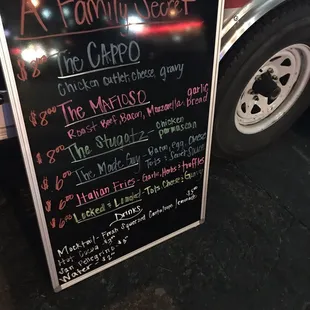 A Family Secret
$8.00 The CAPPO
Chicken cutlet, cheese, gravy
$8.00 The MAFIOSO
Roast Beef, Bacon, Mozzarella, garlic bread
$8.00 The Stugatz - chicken parmesan
$6.00 The Made Guy - Bacon, egg, cheese
Tots + Secret Sauce
$6.00 Italian Fries - Garlic, Herbs + truffles
$6.00 Locked + Loaded - Tots Cheese + Gravy
Drinks
Mocktail - Fresh Squeezed Cantaloupe Lemonade
Hot Cocoa
San Pellegrino
Water